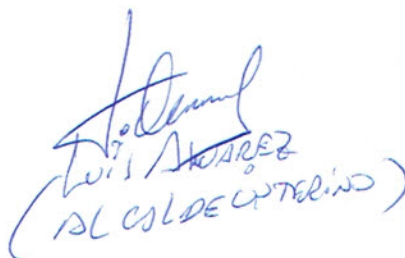 LUIS ALVAREZ
(ALCALDE INTERINO)